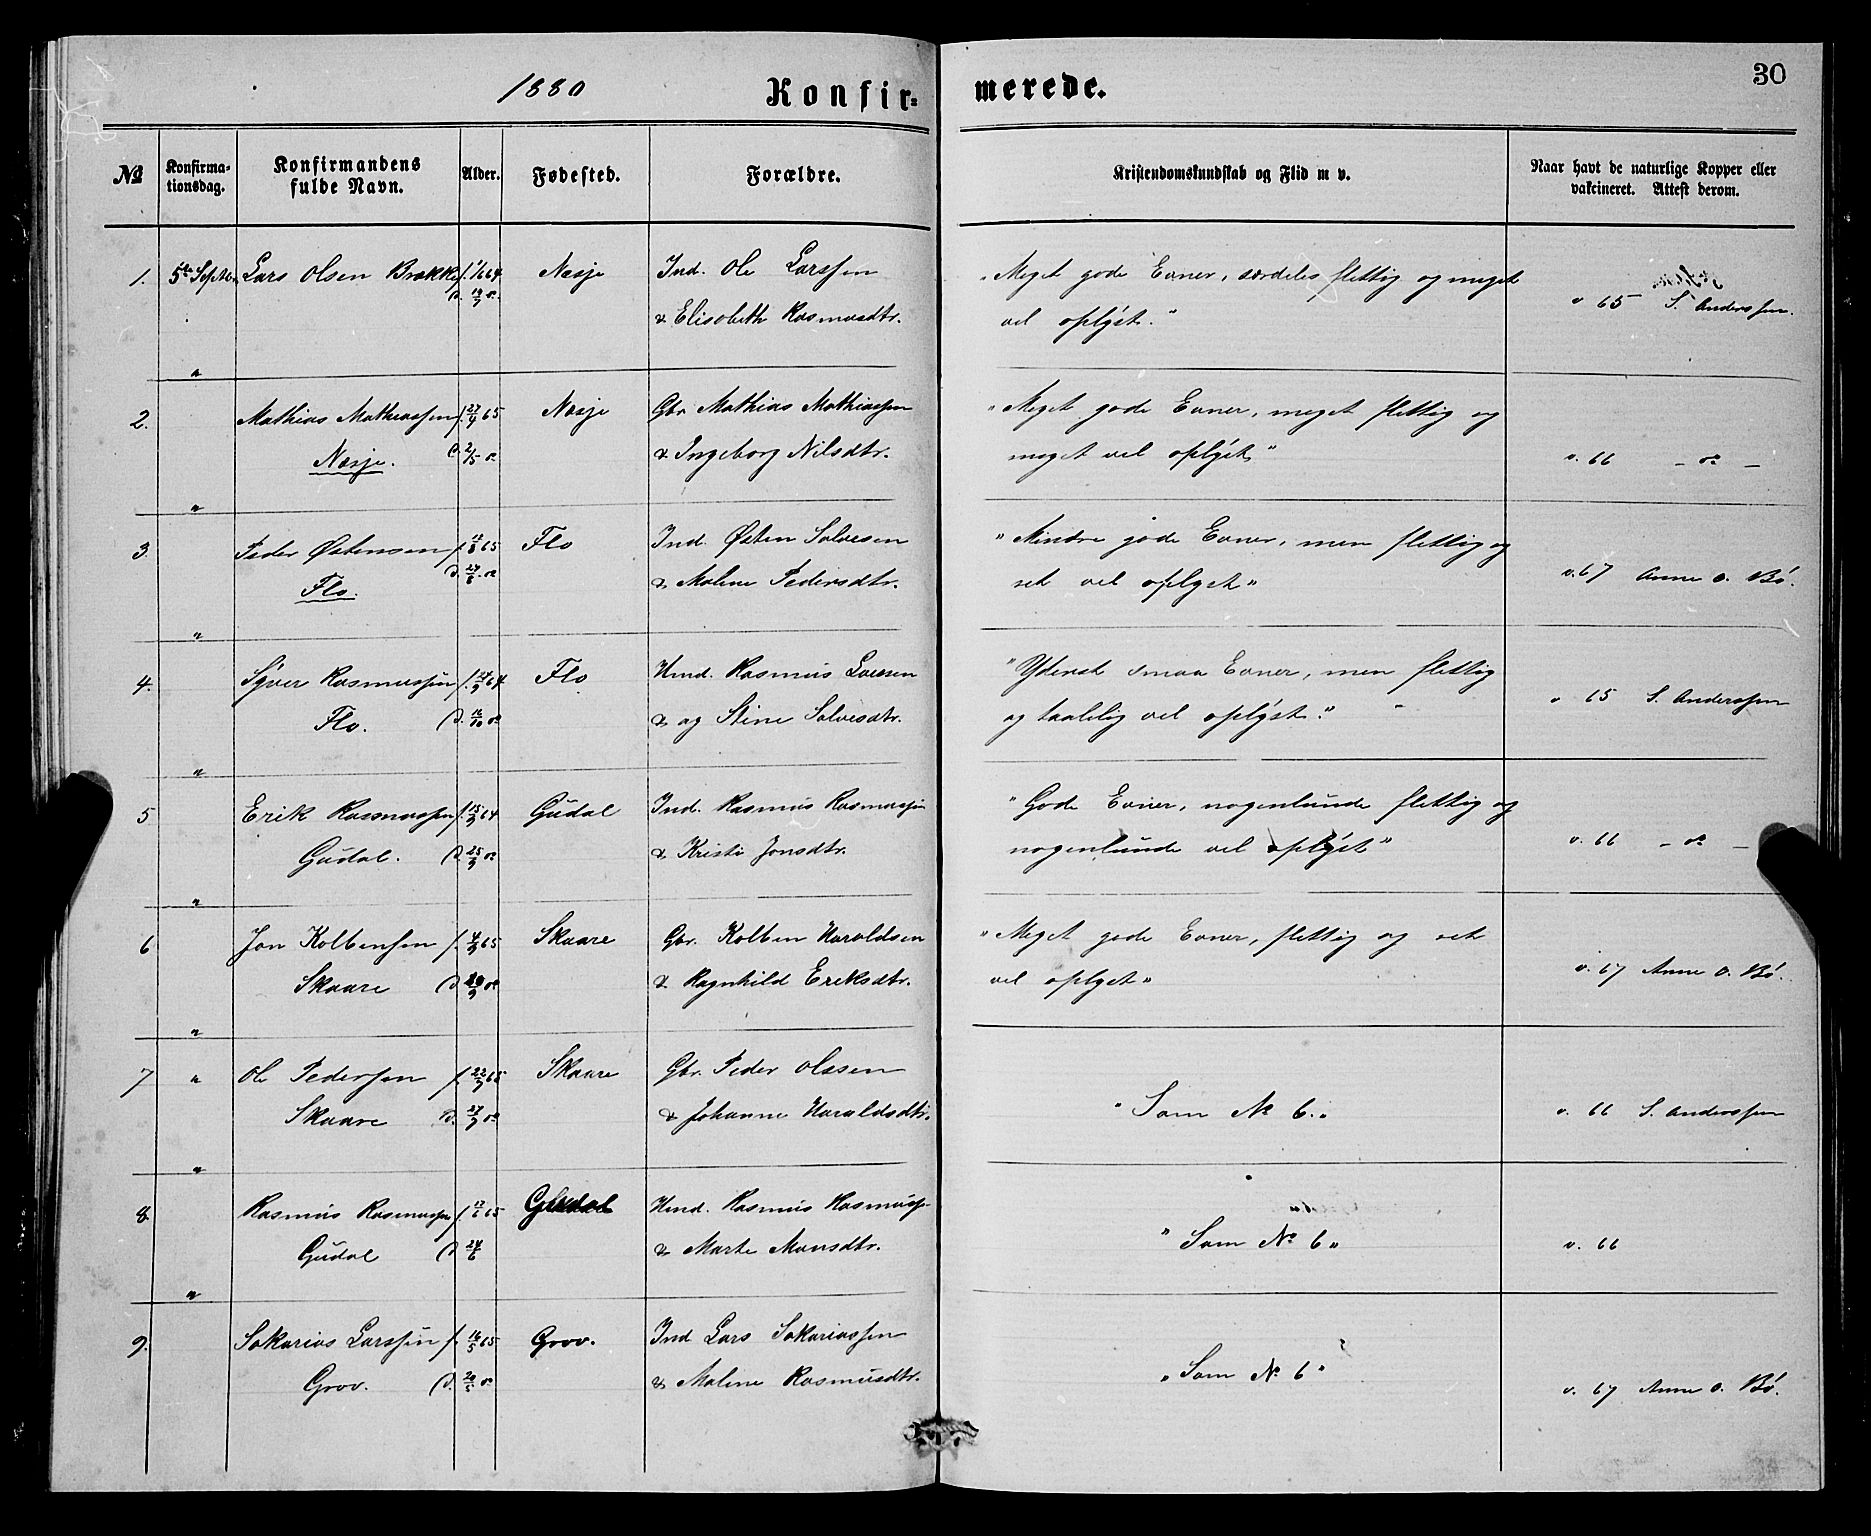 1880 Konfirmerede. 30
№ Konfirmationsdag. Konfirmandens fulde Navn. Alder. Fødested. Forældre. Kristendomskundskab og Flid m v. Naar havt de naturlige Kopper eller vakcineret. Attest derom.
1. 5te Septbr. Lars Olsen Brække f. 1/6 64 Næsje Ind. Ole Larssen "Meget gode Evner, særdeles flittig og meget
d. 19/7 o. & Elisabeth Rasmusdtr. vel oplyst." v 65 S. Anderssen.
"
2. Mathias Mathiassen f. 27/4 65 Næsje Gbr. Mathias Mathiassen "Meget gode Evner, meget flittig og
Næsje. d. 2/5 o. & Ingeborg Nilsdtr. meget vel oplyst" v. 66 – o. –
"
3. Peder Østensen f. 65 Flo Ind. Østen Solvesen "Mindre gode Evner, men flittig og
Flo. d. o. & Malene Pedersdtr. ret vel oplyst" v. 67 Anne O. Bø.
"
4. Syver Rasmussen f. 64 Flo Hmd. Rasmus Larssen "Yderst smaa Evner, men flittig
Flo. d. 16/10 o. & og Stine Solvesdtr. og taalelig vel oplyst." v 65 S. Anderssen
"
5 Erik Rasmussen f. 15/9 64 Gudal Ind. Rasmus Rasmussen "Gode Evner, nogenlunde flittig og
Gudal. d. 25/9 o. & Kristi Jonsdtr. nogenlunde vel oplyst" v. 66 – o. –
"
6 Jon Kolbensen f. 4/9 65 Skaare Gbr. Kolben Haraldsen "Meget gode Evner, flittig og ret
Skaare d. o. & Ragnhild Eriksdtr. vel oplyst" v. 67 Anne O. Bø.
"
7 " Ole Pedersen f. 65 Skaare Gbr. Peder Olssen
Skaare d. o. & Johanne Haraldsdtr. "Som № 6." v. 66 S. Anderssen
"
8. Rasmus Rasmussen f. 65 Gudal Hmd. Rasmus Rasmuss.
Gudal d. 24/6 & Marte Monsdtr. "Som No 6" v. 66
"
9. Sakarias Larssen f. 16/5 65 Grov. Ind Lars Sakariassen "Som № 6"
Grov. d. 20/5 o. & Malene Rasmusdtr. v. 67 Anne O. Bø.